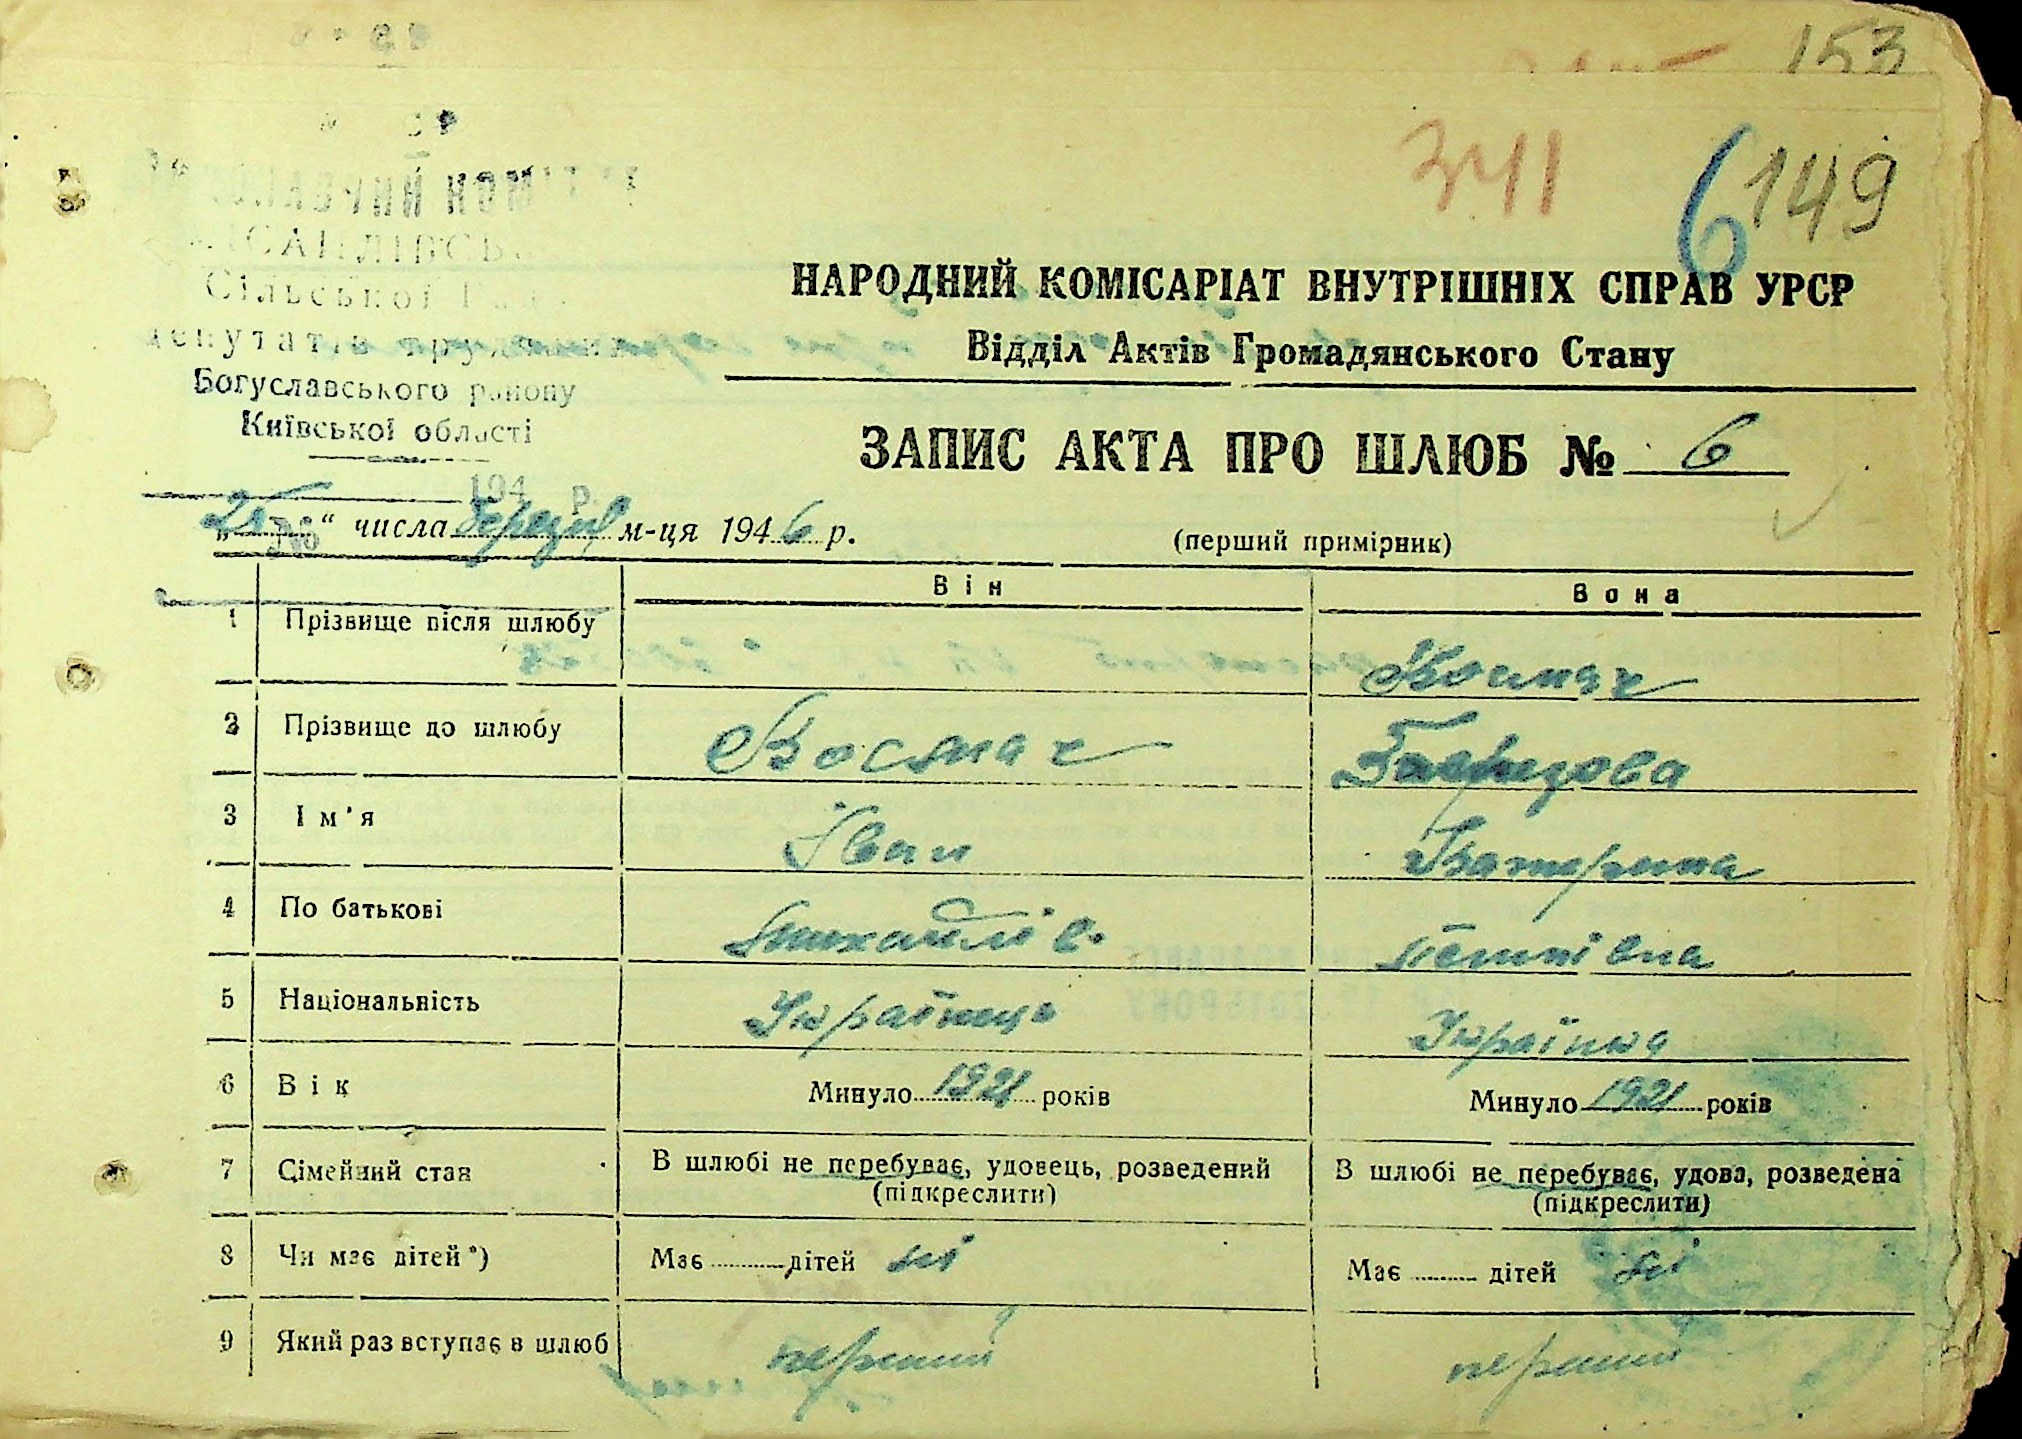 153
341
6
149
НАРОДНИЙ КОМІСАРІАТ ВНУТРІШНІХ СПРАВ УРСР
Відділ Актів Громадянського Стану
Сільської
депутатів
Богуславського району
Київської області
194 р.
№
ЗАПИС АКТА ПРО ШЛЮБ № 6
„25“ числа березня м-ця 1946 р.
(перший примірник)
Він Вона
1 Прізвище після шлюбу Космач
2 Прізвище до шлюбу Космач
3 Ім'я Іван Катерина
4 По батькові Михайлів.
5 Національність Українець Українка
6 Вік Минуло 1921 років Минуло 1921 років
7 Сімейний стан В шлюбі не перебуває, удовець, розведений (підкреслити) В шлюбі не перебуває, удова, розведена (підкреслити)
8 Чи має дітей*) Має дітей ні Має дітей ні
9 Який раз вступає в шлюб перший перший